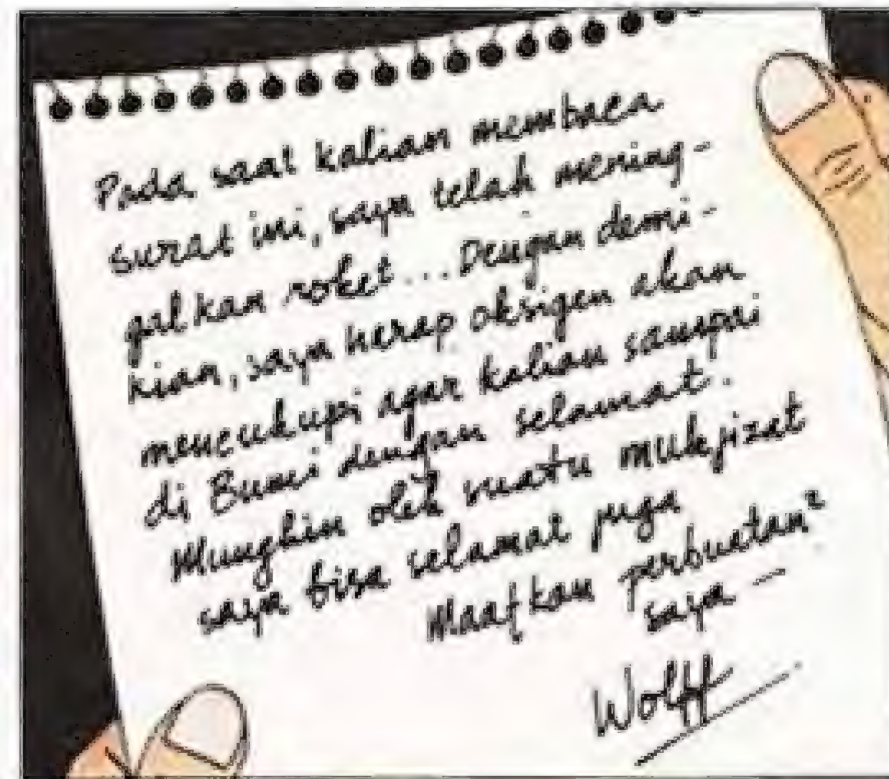 Pada saat kalian membaca
surat ini, saya telah mening-
galkan roket... Dengan demi-
kian, saya harap oksigen akan
mencukupi agar kalian sampai
di Bumi dengan selamat.
Mungkin oleh suatu mukjizat
saya bisa selamat juga
Maafkan perbuatan²
saya —
Wolff